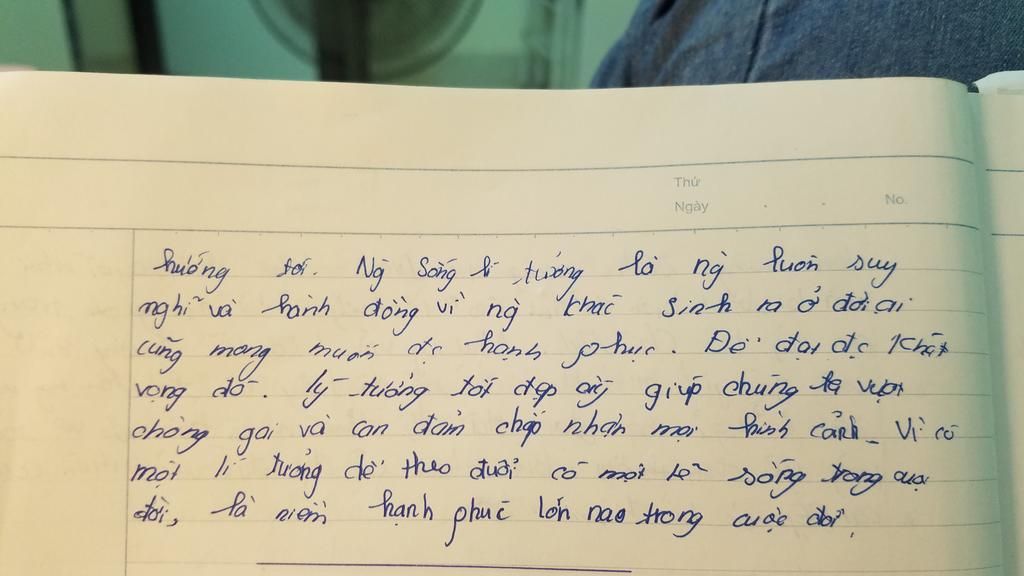 Thứ
Ngày . . No.
hướng tới. Ng sống lí tưởng là ng luôn suy
nghĩ và hành động vì ng khác sinh ra ở đời ai
cũng mong muốn đc hạnh phúc. Để đạt đc khát
vọng đó. lý tưởng tốt đẹp ấy giúp chúng ta vượt
chông gai và can đảm chấp nhận mọi hình cảnh. Vì có
một lí tưởng để theo đuổi có một lẽ sống trong cuộc
đời, là niềm hạnh phúc lớn nao trong cuộc đời.